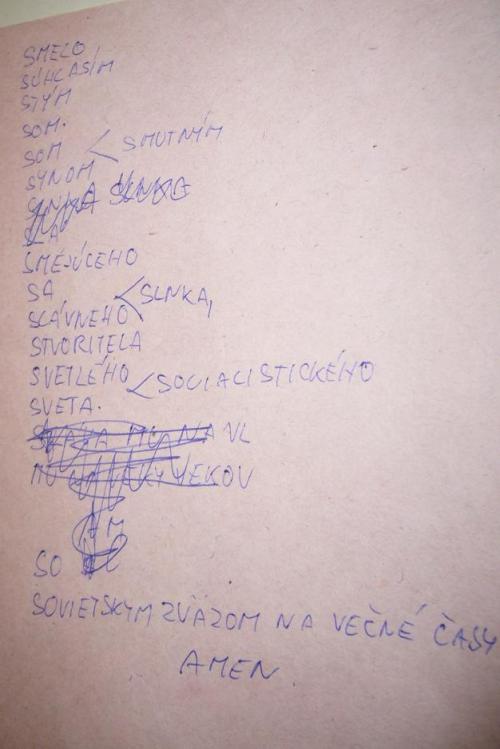 SMELO
SÚHLASÍM
STÝM
SOM.
SOM < SMUTNÝM
SYNOM
SLNKA
SMEJÚCEHO
SA < SLNKA,
SLÁVNEHO
STVORITEĽA
SVETLÉHO < SOCIALISTICKÉHO
SVETA.
SLÁVA MU NA VL
MU NA VEKY VEKOV
AM
SO
SOVIETSKYM ZVÄZOM NA VEČNÉ ČASY
AMEN.